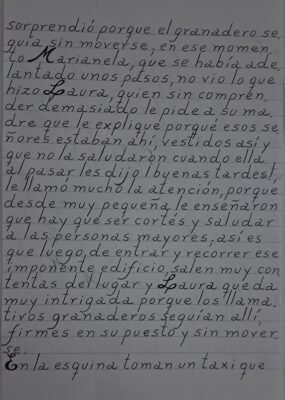 sorprendió porque el granadero se-
guia sin moverse, en ese momen
to Marianela, que se había ade
lantado unos pasos, no vio lo que
hizo Laura, quien sin compren
der demasiado le pide a su ma
dre que le explique porqué esos se
ñores estaban ahí, vestidos así y
que no la saludaron cuando ella
al pasar les dijo ¡buenas tardes!,
le llamó mucho la atención, porque
desde muy pequeña le enseñaron
que hay que ser cortés y saludar
a las personas mayores, así es
que luego, de entrar y recorrer ese
imponente edificio, salen muy con
tentas del lugar y Laura queda
muy intrigada porque los llama
tivos granaderos seguían allí,
firmes en su puesto y sin mover
se.
En la esquina toman un taxi que